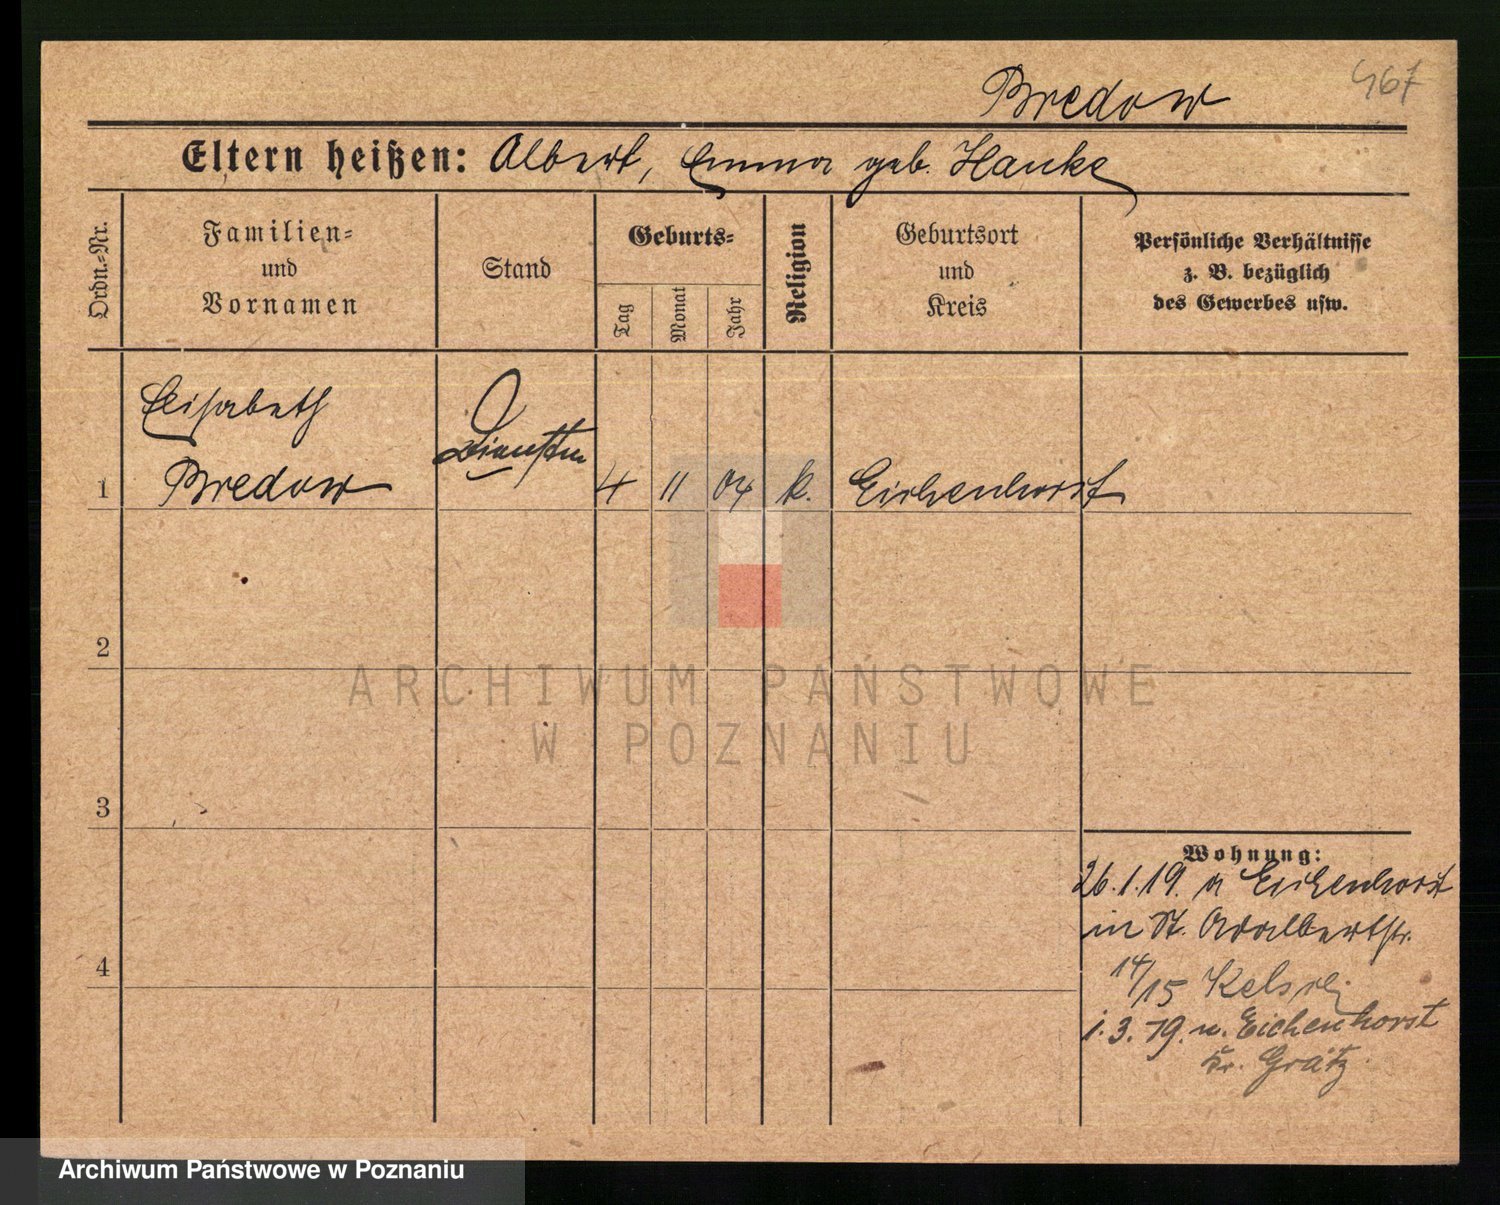 Bredow
467
Eltern heißen: Albert, Emma geb. Hanke
Ordn.-Nr.
Familien-
und
Vornamen
Stand
Geburts-
Tag
Monat
Jahr
Religion
Geburtsort
und
Kreis
Persönliche Verhältnisse
z. B. bezüglich
des Gewerbes usw.
Elisabeth
Bredow
1
4 11 04 k. Eichenhorst
2
ARCHIWUM PAŃSTWOWE
W POZNANIU
3
Wohnung:
26.1.19. a Eichenhorst
in St. Adalbertstr.
4
14/15
1.3.19. n. Eichenhorst
Kr. Grätz.
Archiwum Państwowe w Poznaniu